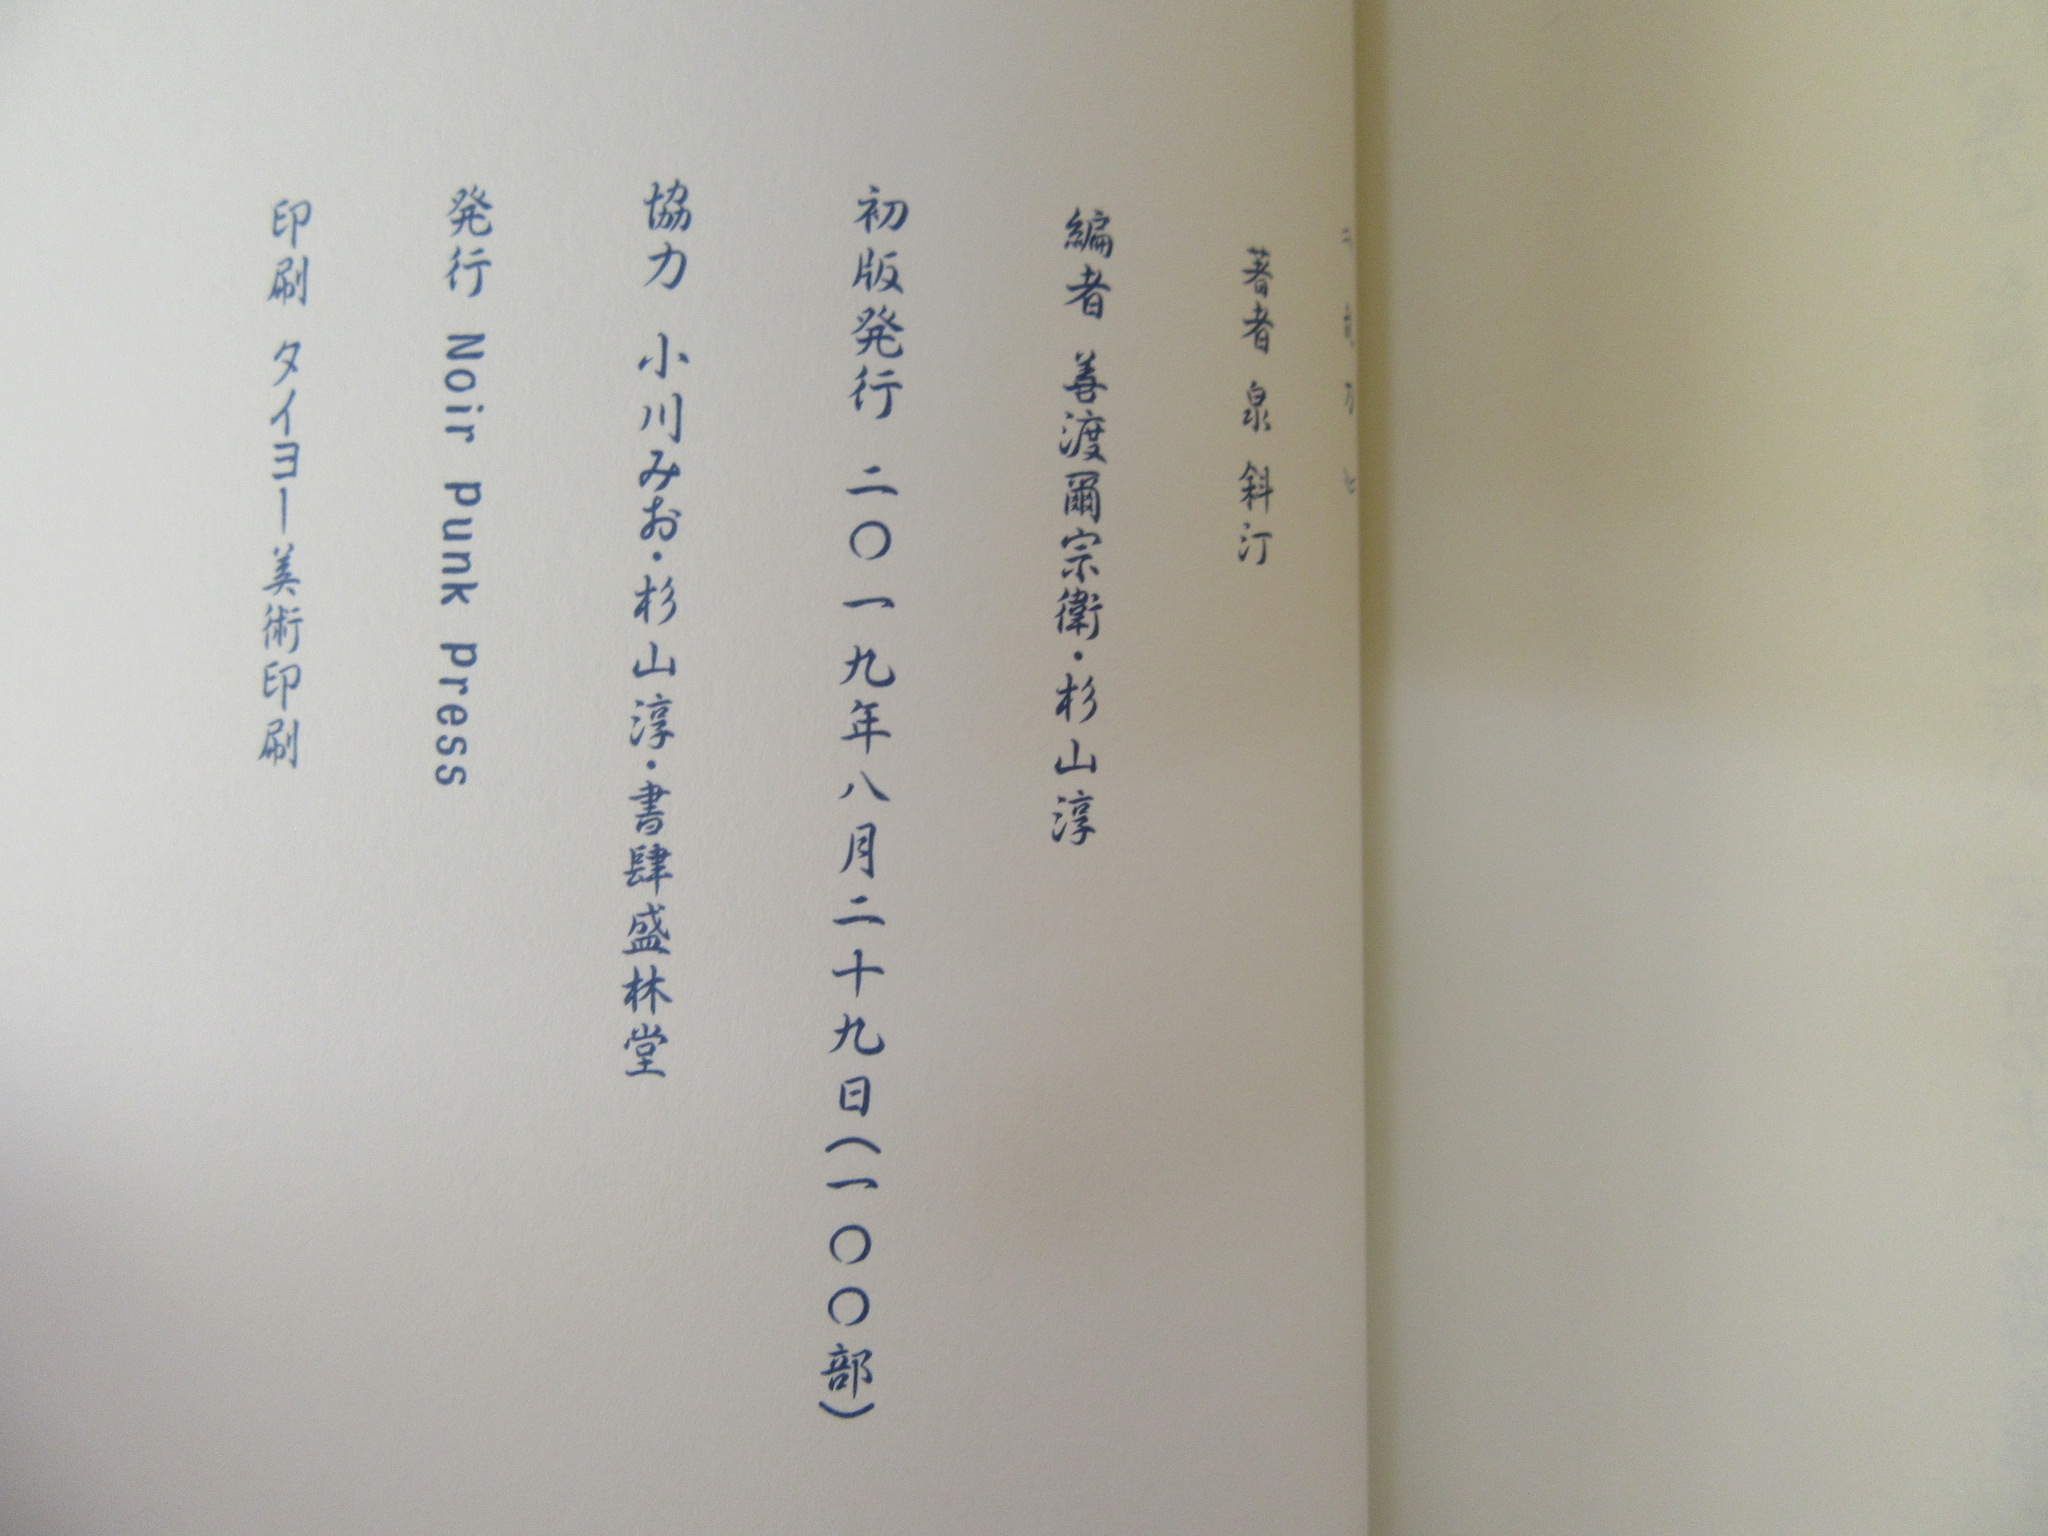 著者 泉 斜汀
編者 善渡爾宗衛・杉山淳
初版発行 二〇一九年八月二十九日(一〇〇部)
協力 小川みお・杉山淳・書肆盛林堂
発行 Noir punk press
印刷 タイヨー美術印刷